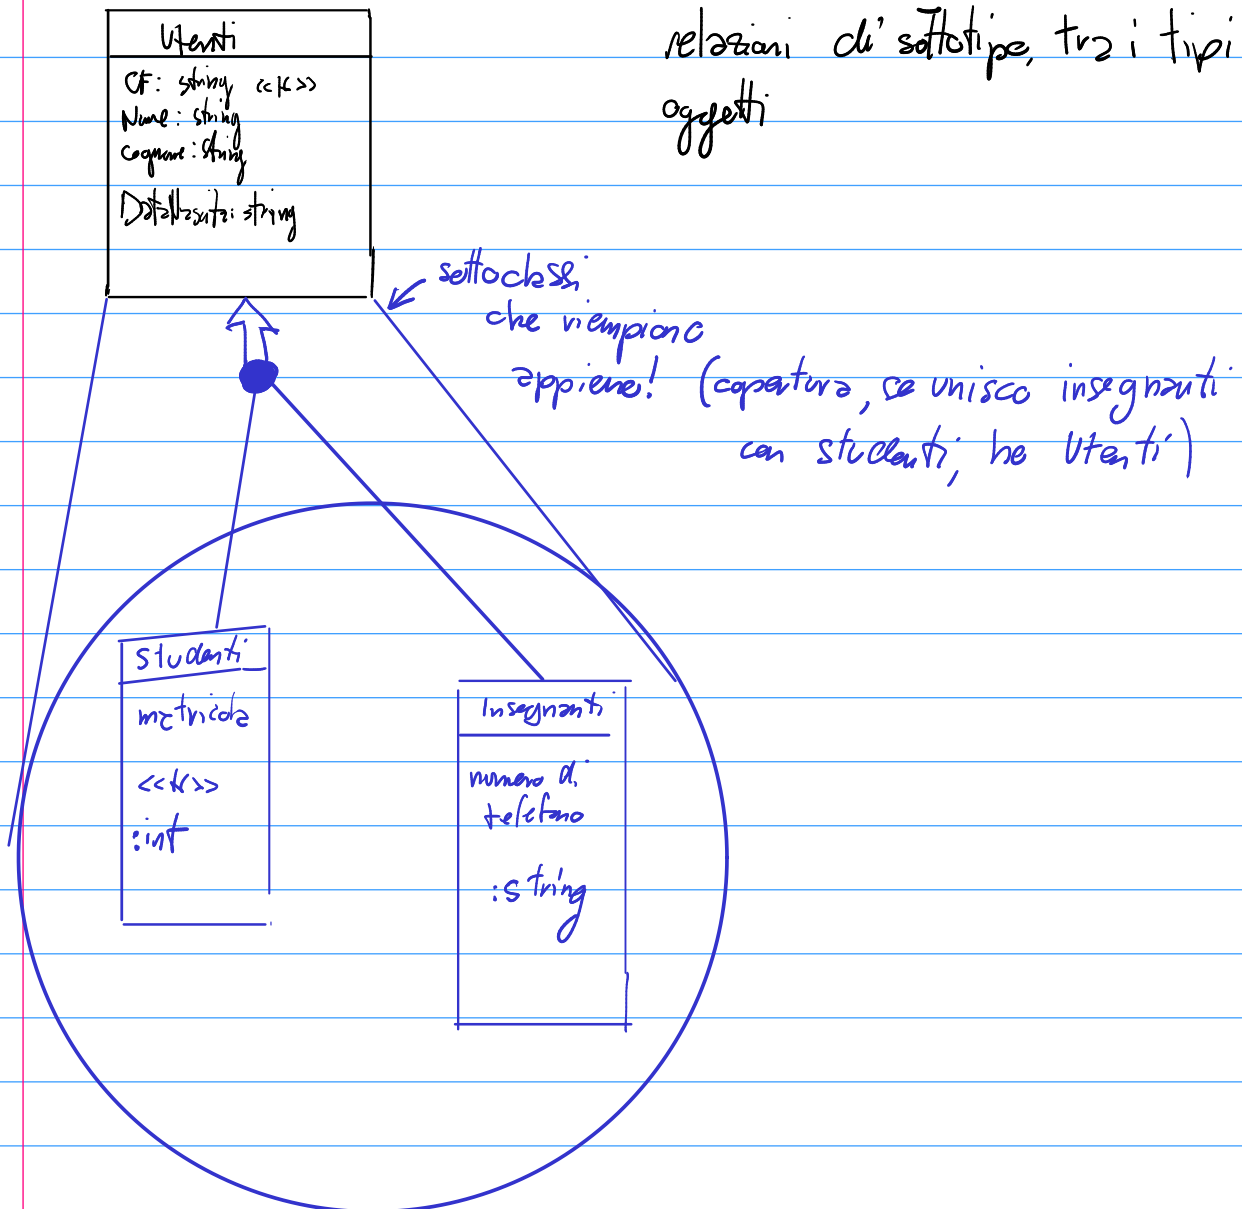 Utenti
CF: string <<K>>
Nome: string
Cognome: string
DataNascita: string
relazioni di sottotipo, tra i tipi
oggetti
sottoclassi
che riempiono
appieno! (copertura, se unisco insegnanti
con studenti, ho Utenti)
Studenti
matricola
<<K>>
:int
Insegnanti
numero di
telefono
:string